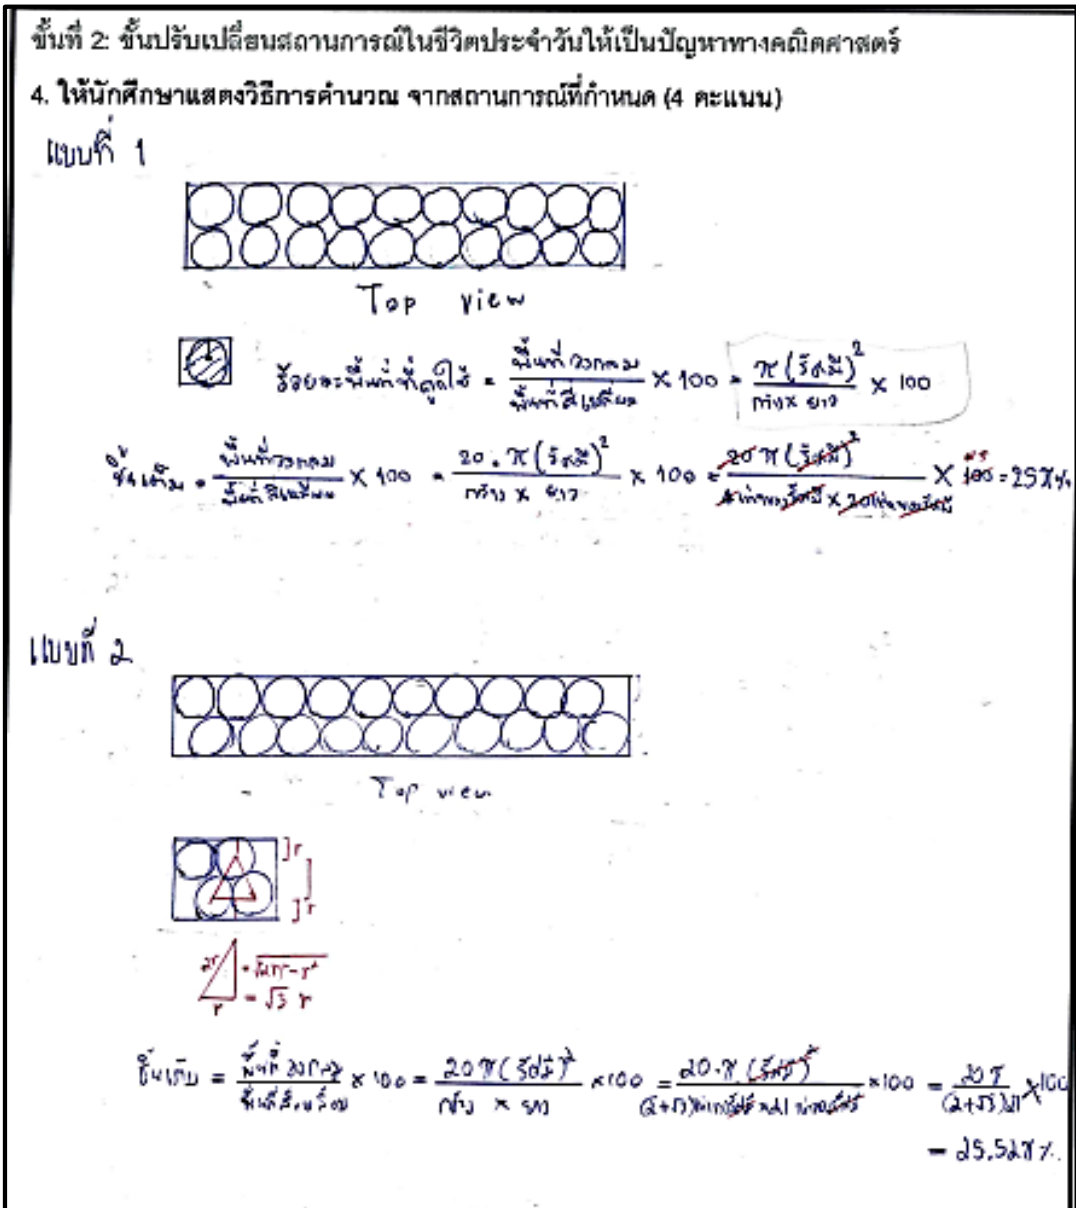 ขั้นที่ 2: ขั้นปรับเปลี่ยนสถานการณ์ในชีวิตประจำวันให้เป็นปัญหาทางคณิตศาสตร์
4. ให้นักศึกษาแสดงวิธีการคำนวณ จากสถานการณ์ที่กำหนด (4 คะแนน)
แบบที่ 1
Top view
ร้อยละพื้นที่ที่ถูกใช้ = พื้นที่วงกลม / พื้นที่สี่เหลี่ยม × 100 = π(รัศมี)² / กว้าง × ยาว × 100
= พื้นที่วงกลม / พื้นที่สี่เหลี่ยม × 100 = 20 . π(รัศมี)² / กว้าง × ยาว × 100 = 20 π(รัศมี)² / 4 เท่าของรัศมี × 20 เท่าของรัศมี × 100 = 25π%
แบบที่ 2
Top view
]r
]r
2r
= √3 r
r
= พื้นที่วงกลม / พื้นที่สี่เหลี่ยม × 100 = 20 π(รัศมี)² / กว้าง × ยาว × 100 = 20 . π(รัศมี)² / (2+√3) เท่าของรัศมี × 21 เท่าของรัศมี × 100 = 20π / (2+√3)21 × 100
= 25.52π%